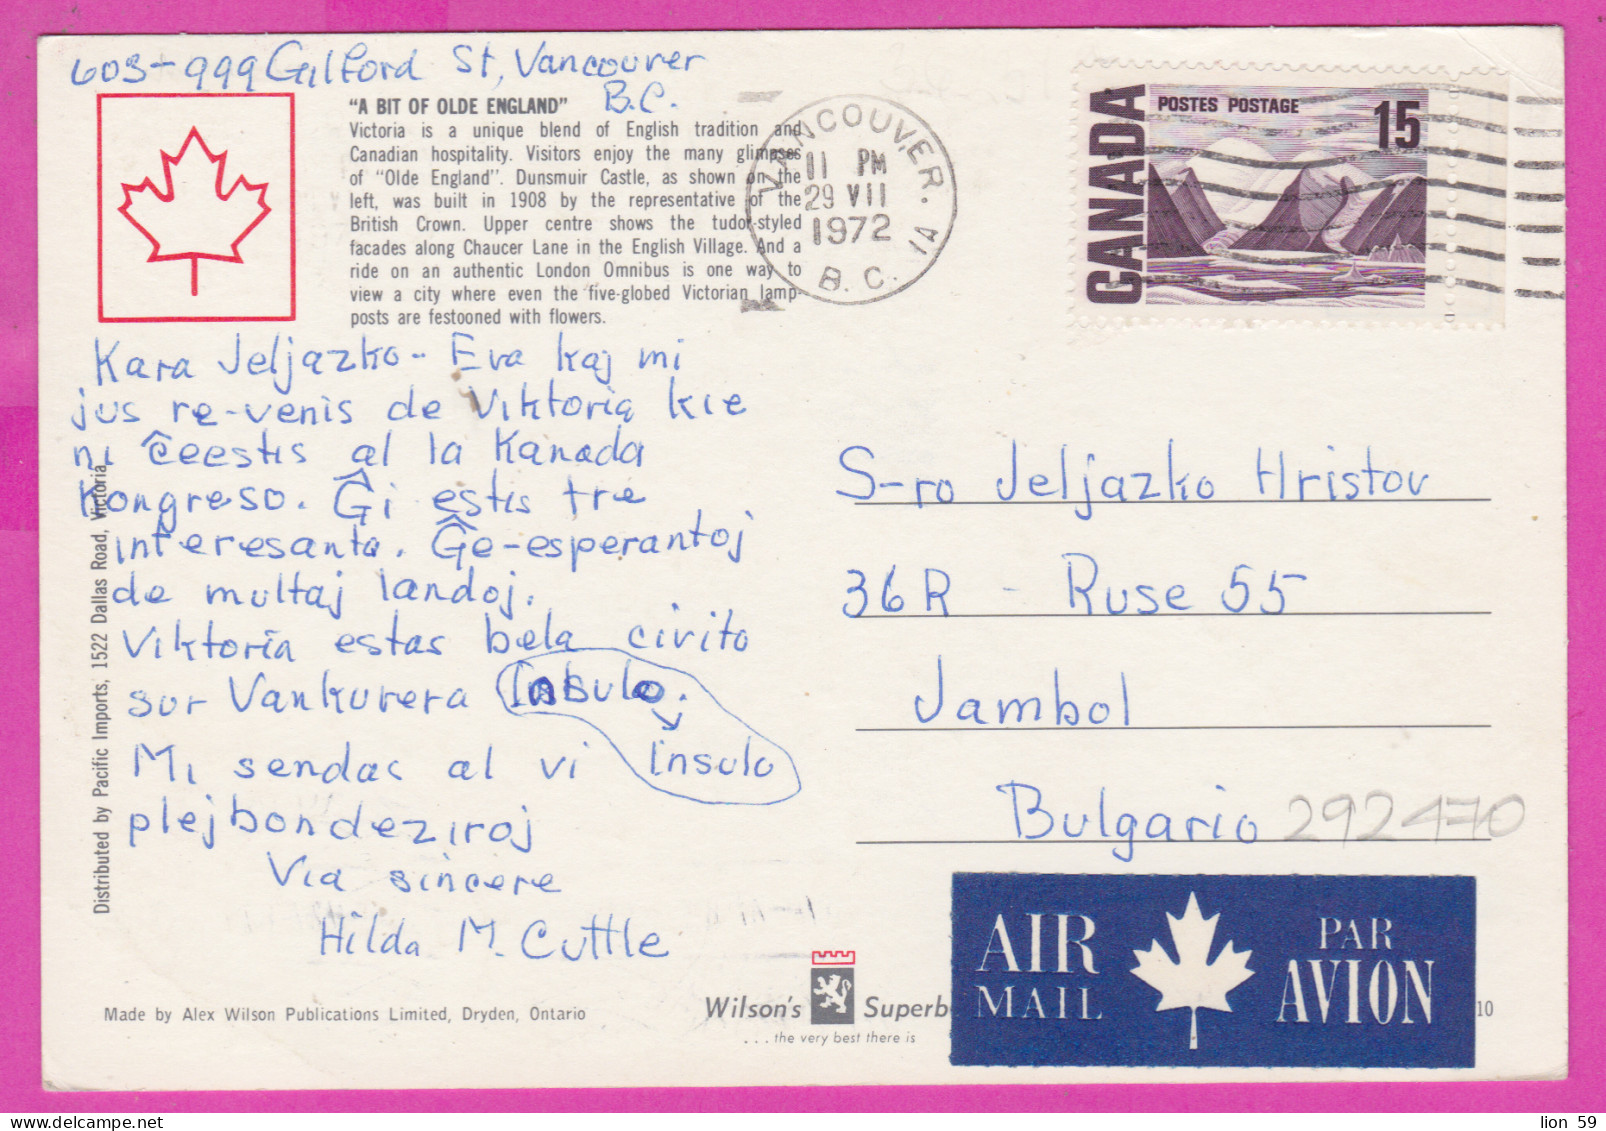 603-999 Gilford St, Vancouver
B.C.
"A BIT OF OLDE ENGLAND"
Victoria is a unique blend of English tradition and
Canadian hospitality. Visitors enjoy the many glimpses
of "Olde England". Dunsmuir Castle, as shown on the
left, was built in 1908 by the representative of the
British Crown. Upper centre shows the tudor-styled
facades along Chaucer Lane in the English Village. And a
ride on an authentic London Omnibus is one way to
view a city where even the five-globed Victorian lamp-
posts are festooned with flowers.
VANCOUVER. 1A
11 PM
29 VII
1972
B.C.
CANADA
POSTES POSTAGE
15
Kara Jeljazko - Eva kaj mi
jus re-venis de Viktoria kie
ni ĉeestis al la Kanada
Kongreso. Ĝi estis tre
interesanta. Ĝe-esperantoj
de multaj landoj.
Viktoria estas bela civito
sur Vankuvera Insulo.
Insulo
Mi sendas al vi
plejbondeziroj
Via sincere
Hilda M. Cuttle
S-ro Jeljazko Hristov
36R - Ruse 55
Jambol
Bulgario 292470
Distributed by Pacific Imports, 1522 Dallas Road, Victoria
Made by Alex Wilson Publications Limited, Dryden, Ontario
Wilson's Superb
...the very best there is
AIR MAIL
PAR AVION
10
delcampe.net
lion_59